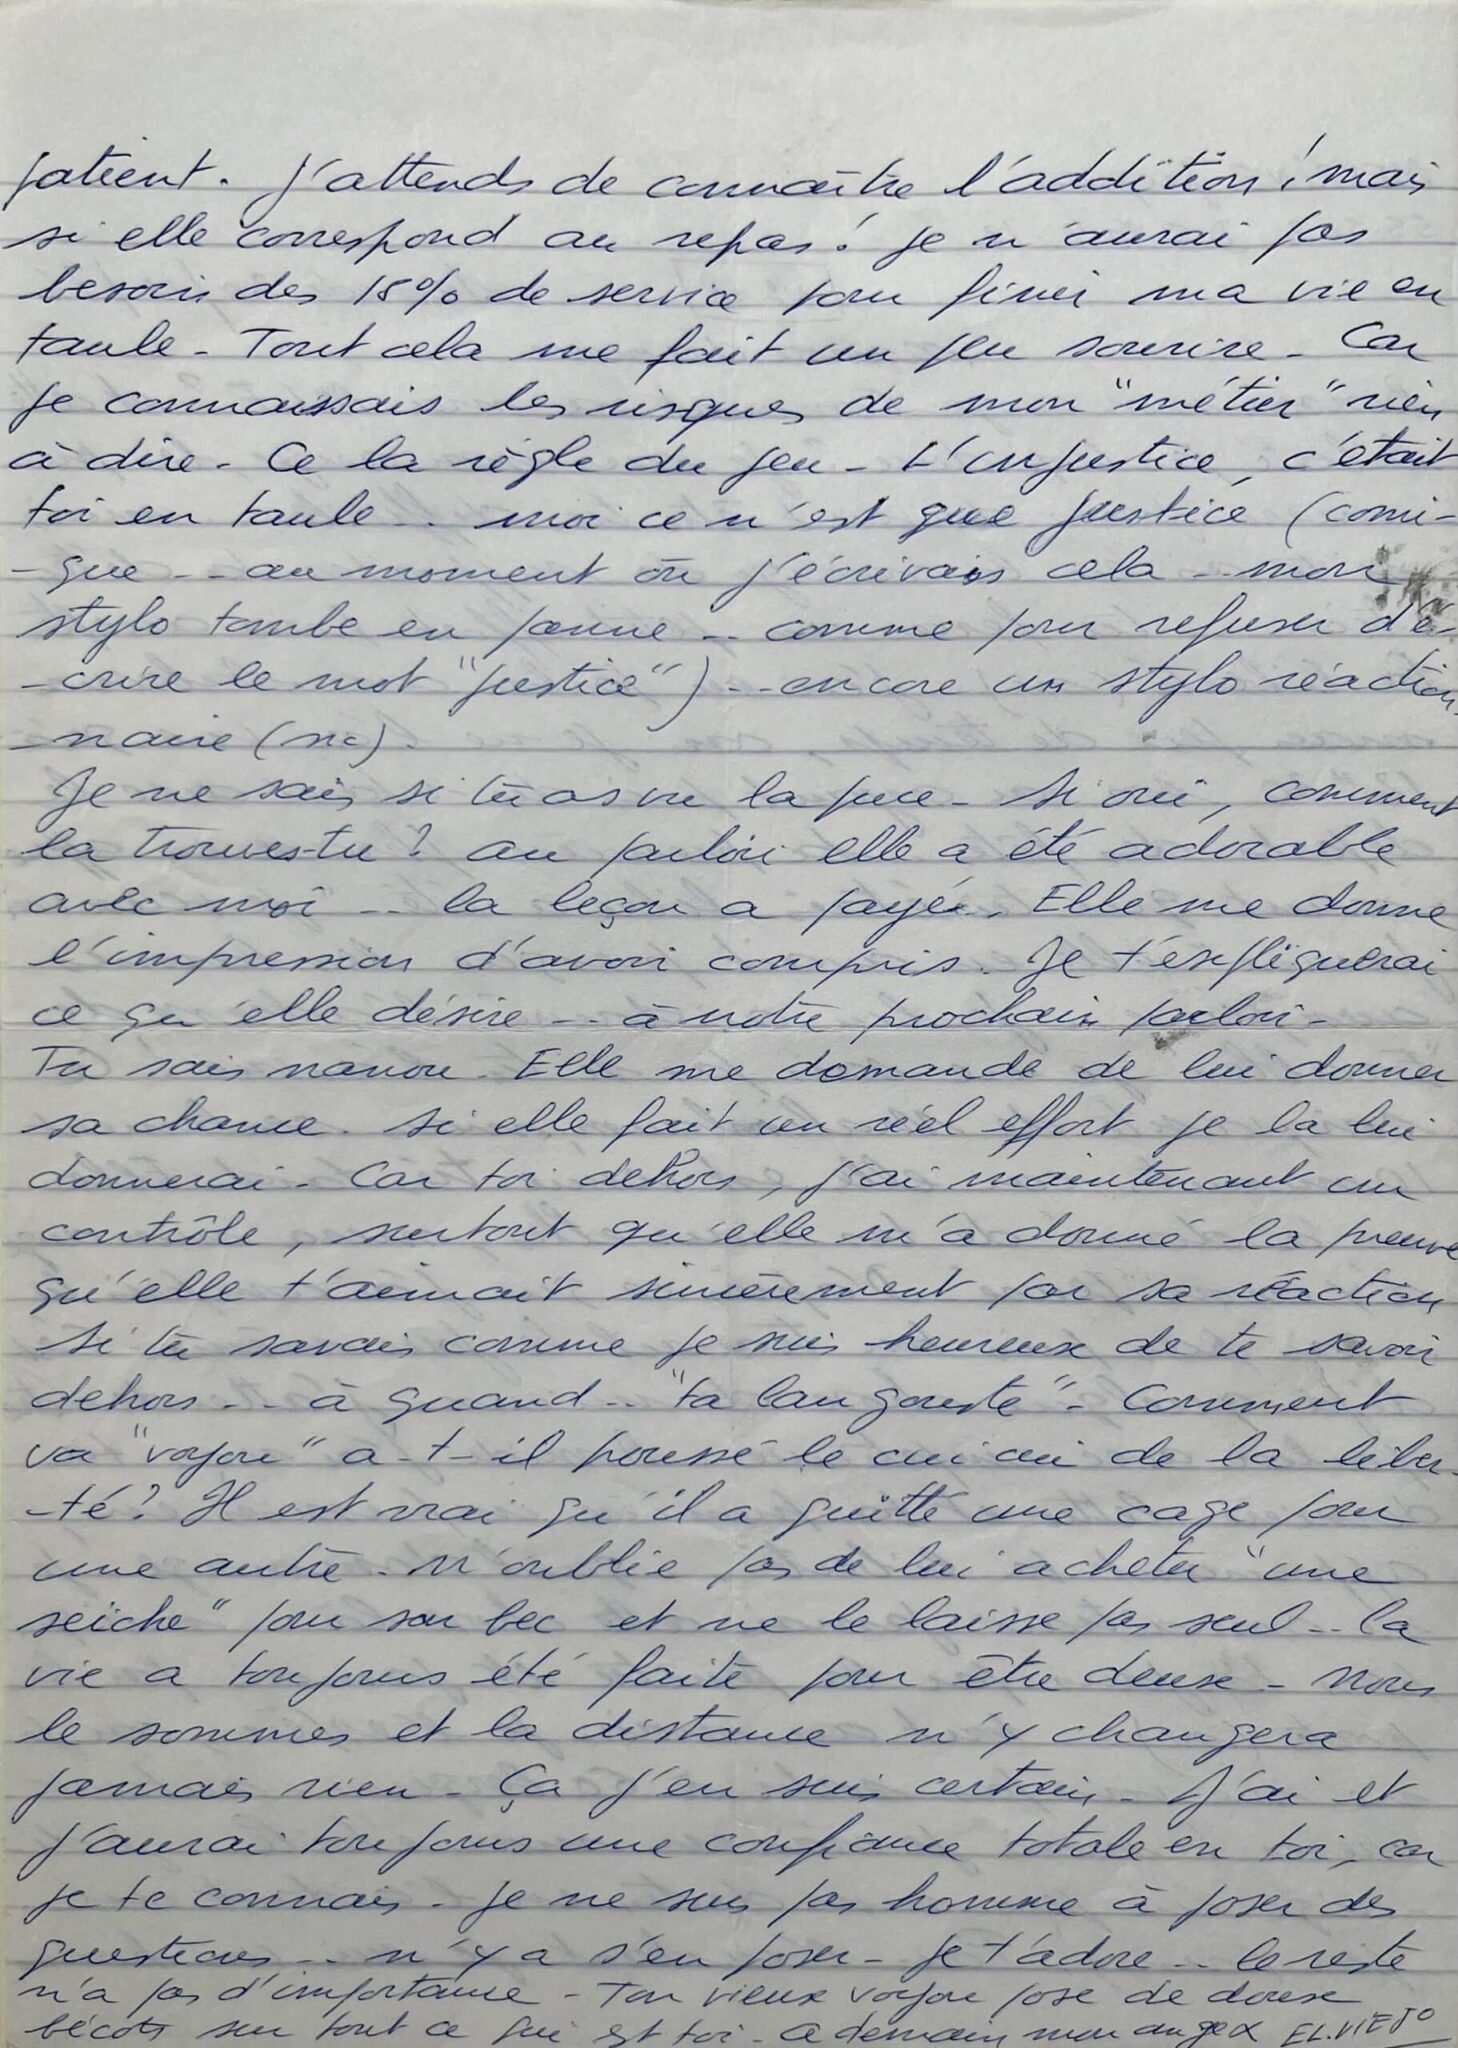 patient. J'attends de connaître l'addition ! mais
si elle correspond au repas ! je n'aurai pas
besoin des 15% de service pour finir ma vie en
taule - Tout cela me fait un peu sourire - Car
je connaissais les risques de mon "métier" rien
à dire - Ce la règle du jeu - L'injustice, c'était
toi en taule .. moi ce n'est que justice (comi-
-que -- au moment où j'écrivais cela -- mon
stylo tombe en panne -- comme pour refuser d'é-
-crire le mot "justice") -- encore un stylo réaction
-naire (sic).
Je ne sais si tu as vu la puce - Si oui, comment
la trouves-tu ? au parloir elle a été adorable
avec moi -- la leçon a payée. Elle me donne
l'impression d'avoir compris. Je t'expliquerai
ce qu'elle désire -- à notre prochain parloir -
Tu sais nanou. Elle me demande de lui donner
sa chance. Si elle fait un réel effort je la lui
donnerai - Car toi dehors, j'ai maintenant un
contrôle, surtout qu'elle m'a donné la preuve
qu'elle t'aimait sincèrement par sa réaction
Si tu savais comme je suis heureux de te savoir
dehors -- à quand -- "ta langouste" - Comment
va "voyou" a-t-il poussé le cui cui de la liber-
-té ? Il est vrai qu'il a quitté une cage pour
une autre - N'oublie pas de lui acheter "une
seiche" pour son bec et ne le laisse pas seul -- la
vie a toujours été faite pour être deux - Nous
le sommes et la distance n'y changera
jamais rien - Ça j'en suis certain - J'ai et
j'aurai toujours une confiance totale en toi, car
je te connais - je ne suis pas homme à poser des
questions -- n'y a s'en poser - je t'adore -- le reste
n'a pas d'importance - Ton vieux voyou pose de doux
bécots sur tout ce qui est toi - a demain mon ange EL.VIEJO